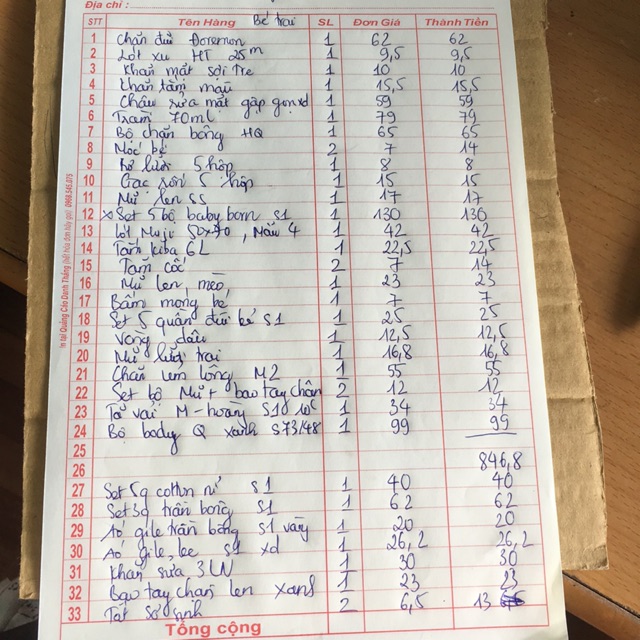 Địa chỉ :
STT Tên Hàng Bé trai SL Đơn Giá Thành Tiền
1 Chăn đũi Doremon 1 62 62
2 Lót xu HT 25m 1 9,5 9,5
3 Khăn mặt sợi tre 1 10 10
4 Khăn tắm 1 15,5 15,5
5 Chậu rửa mặt gấp gọn xd 1 59 59
6 70ml 1 79 79
7 Bộ chăn bông HQ 1 65 65
8 Móc bé 2 7 14
9 Rơ lưỡi 5 hộp 1 8 8
10 Gạc rốn 5 hộp 1 15 15
11 Mũ len SS 1 17 17
12 x Set 5 bộ baby born S1 1 130 130
13 Lót Muji 50x70, Mẫu 4 1 42 42
14 Tăm kiba 6L 1 22,5 22,5
15 Tăm cốc 2 7 14
16 Mũ len, mèo, 1 23 23
17 Bấm móng bé 1 7 7
18 Set 5 quần đũi bé S1 1 25 25
19 Vòng dâu 1 12,5 12,5
20 Mũ lưỡi trai 1 16,8 16,8
21 Chăn lem lông M2 1 55 55
22 Set bộ Mũ + bao tay chân 2 12 12
23 Tã vải M-hoàng S1 1 34 34
24 Bộ body Q xanh S73/48 1 99 99
25
26 846,8
27 Set 5q cotton nỉ S1 1 40 40
28 Set 3q trần bông S1 1 62 62
29 Áo gile trần bông S1 vàng 1 20 20
30 Áo gile lee S1 xd 1 26,2 26,2
31 Khăn sữa 3LN 1 30 30
32 Bao tay chân len xanh 1 23 23
33 Tất sơ sinh 2 6,5 13
Tổng cộng
In tại Quảng Cáo Danh Thắng 0968.545.075